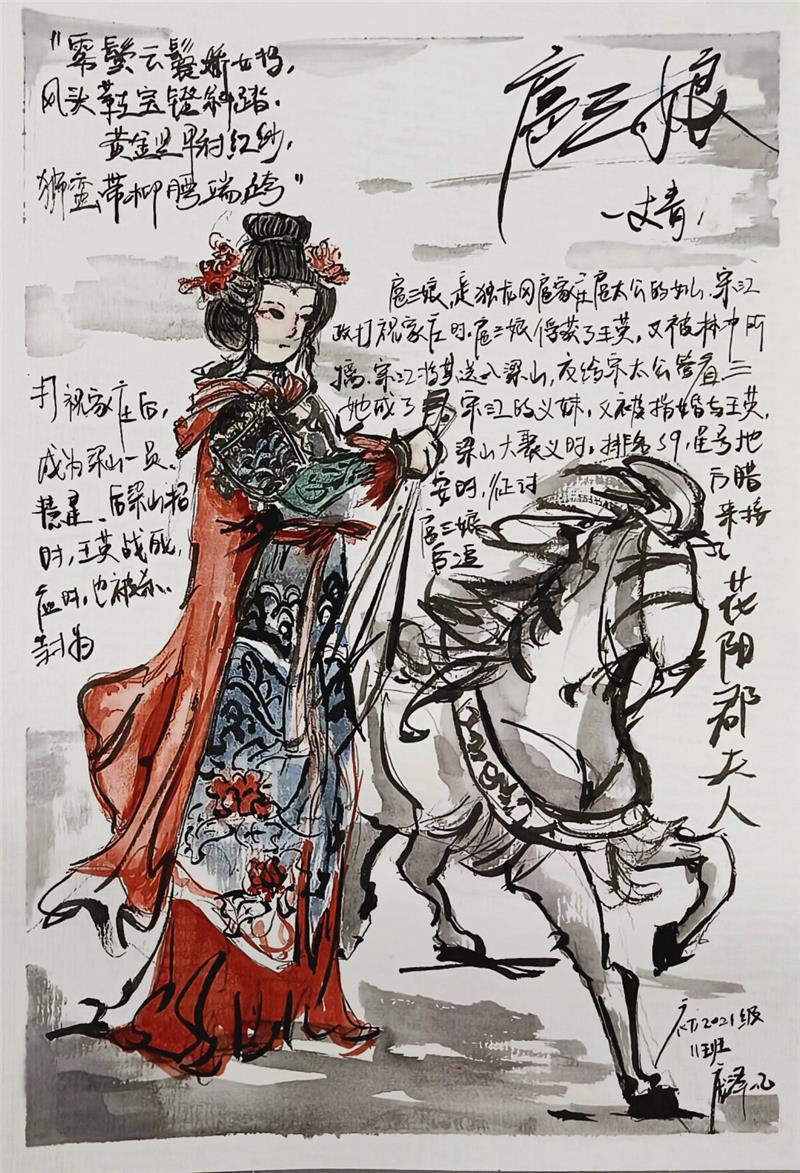 "雾鬓云鬟娇女将,
凤头鞋宝镫斜踏.
黄金坚甲衬红纱,
狮蛮带柳腰端跨"
扈三娘
一丈青,
扈三娘,是独龙冈扈家庄扈太公的女儿.宋江
攻打祝家庄时.扈三娘俘获了王英,又被林冲所
擒.宋江将其送入梁山,交给宋太公管看
她成了 宋江的义妹,又被指婚与王英,
梁山大聚义时,排名59,星号地
打祝家庄后,
成为梁山一员、
慧星、后梁山招
安时,征讨
方腊
时,王英战死,
扈三娘
来接
应时,也被杀.
后追
封为
花阳郡夫人
2021级
11班